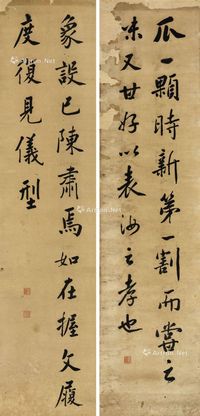 瓜一顆時新第一割而嘗之
味又甘好以表海之孝也
象設已陳肅焉如在握文履
度復見儀型